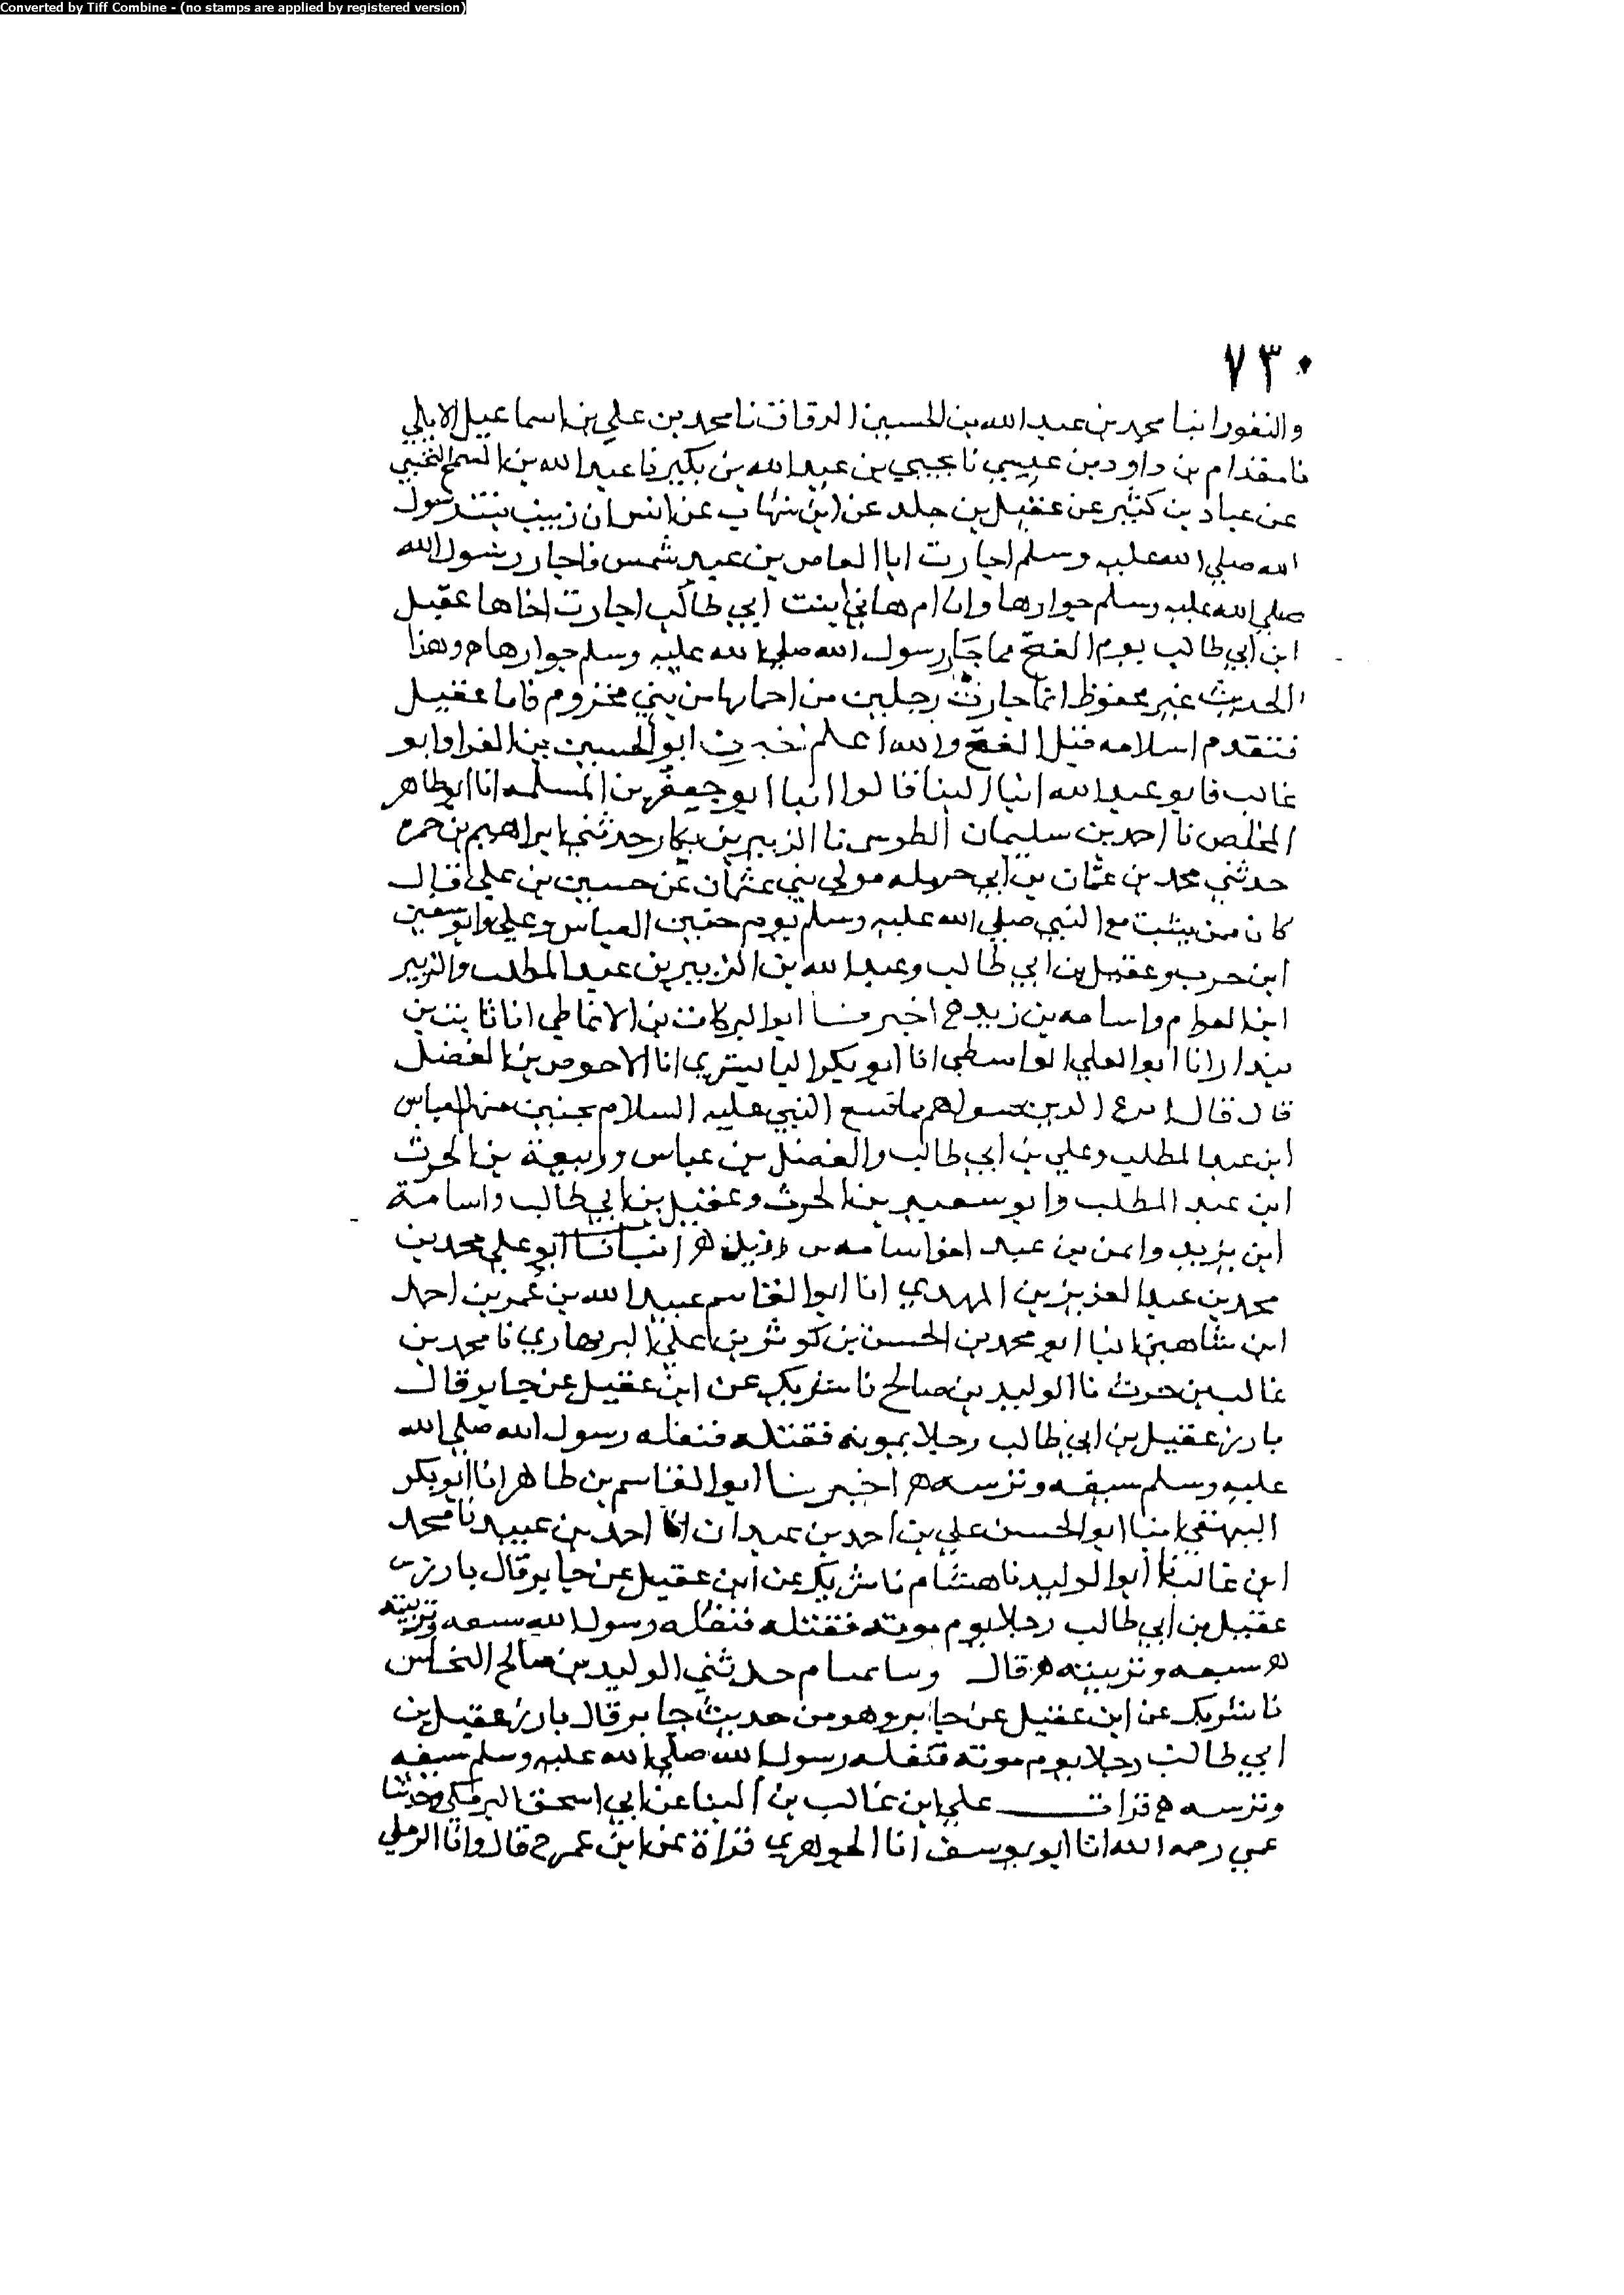 Converted by Tiff Combine - (no stamps are applied by registered version)
٧٣٠
والنقور انبا محمد بن عبد الله بن الحسين الدقاق نا محمد بن علي بن اسماعيل الايلي
نا مقدام بن داود بن عيسي نا يحيي بن عبد الله بن بكير نا عبد الله بن السمح التجيبي
عن عباد بن كثير عن عقيل بن خلد عن ابن شهاب عن انس ان زينب بنت رسول
الله صلي الله عليه وسلم اجارت ابا العاص بن عبد شمس فاجار رسول الله
صلي الله عليه وسلم جوارها وان ام هاني ابنت ابي طالب اجارت اخاها عقيل
ابن ابي طالب يوم الفتح فاجار رسول الله صلي الله عليه وسلم جوارها ه وهذا
الحديث غير محفوظ انما اجارت رجلين من احمايها من بني مخزوم فاما عقيل
فتقدم اسلامه قبل الفتح والله اعلم اخبرنا ابو الحسين بن الفرا وابو
غالب وابو عبد الله انبا البنا قالوا انبا ابو جعفر بن المسلمه انا ابو طاهر
المخلص نا احمد بن سليمان الطوسي نا الزبير بن بكار حدثني ابراهيم بن حمزه
حدثني محمد بن عثمان بن ابي حرمله مولي بني عثمان عن حسين بن علي قال
كان ممن يثبت مع النبي صلي الله عليه وسلم يوم حنين العباس وعلي وابو سفين
ابن حرب وعقيل بن ابي طالب وعبد الله بن الزبير بن عبد المطلب والزبير
ابن العوام واسامه بن زيد ه اخبرنا ابو البركات بن الانماطي انا ثابت بن
بندار انا ابو العلي الواسطي انا ابو بكر البابسيري انا الاحوص بن الفضل
قال قال النبي عليه السلام بحنين منهم العباس
ابن عبد المطلب وعلي بن ابي طالب والفضل بن عباس وربيعة بن الحرث
ابن عبد المطلب وابو سعيد بن الحرث وعقيل بن ابي طالب واسامة
ابن يزيد وايمن بن عبد اخو اسامه ه انبانا ابو علي محمد بن
محمد بن عبد العزيز بن المهدي انا ابو القاسم عبيد الله بن عمر بن احمد
ابن شاهين انبا ابو محمد بن الحسن بن كوثر بن علي البربهاري نا محمد بن
غالب بن حرث نا الوليد بن صالح نا شريك عن ابن عقيل عن جابر قال
بارز عقيل بن ابي طالب رجلا بموته فقتله فنفله رسول الله صلي الله
عليه وسلم سيفه وترسه ه اخبرنا ابو القاسم بن طاهر انا ابو بكر
البيهقي انبا ابو الحسن علي بن احمد بن عبدان انا احمد بن عبيد نا محمد
ابن غالب نا ابو الوليد نا هشام نا شريك عن ابن عقيل عن جابر قال بارز
عقيل بن ابي طالب رجلا يوم موته فقتله فنفله رسول الله سيفه
قال حدثني الوليد بن صالح النخاس
نا شريك عن ابن عقيل عن جابر وهو من حديث جابر قال بارز عقيل بن
ابي طالب رجلا يوم موته فنفله رسول الله صلي الله عليه وسلم سيفه
وترسه ه قرات علي ابن غالب بن البنا عن ابي اسحق البرمكي وحدثنا
عمي رحمه الله انا ابو يوسف انا الجوهري قراة عن ابن عمر ح قال وانا الرملي